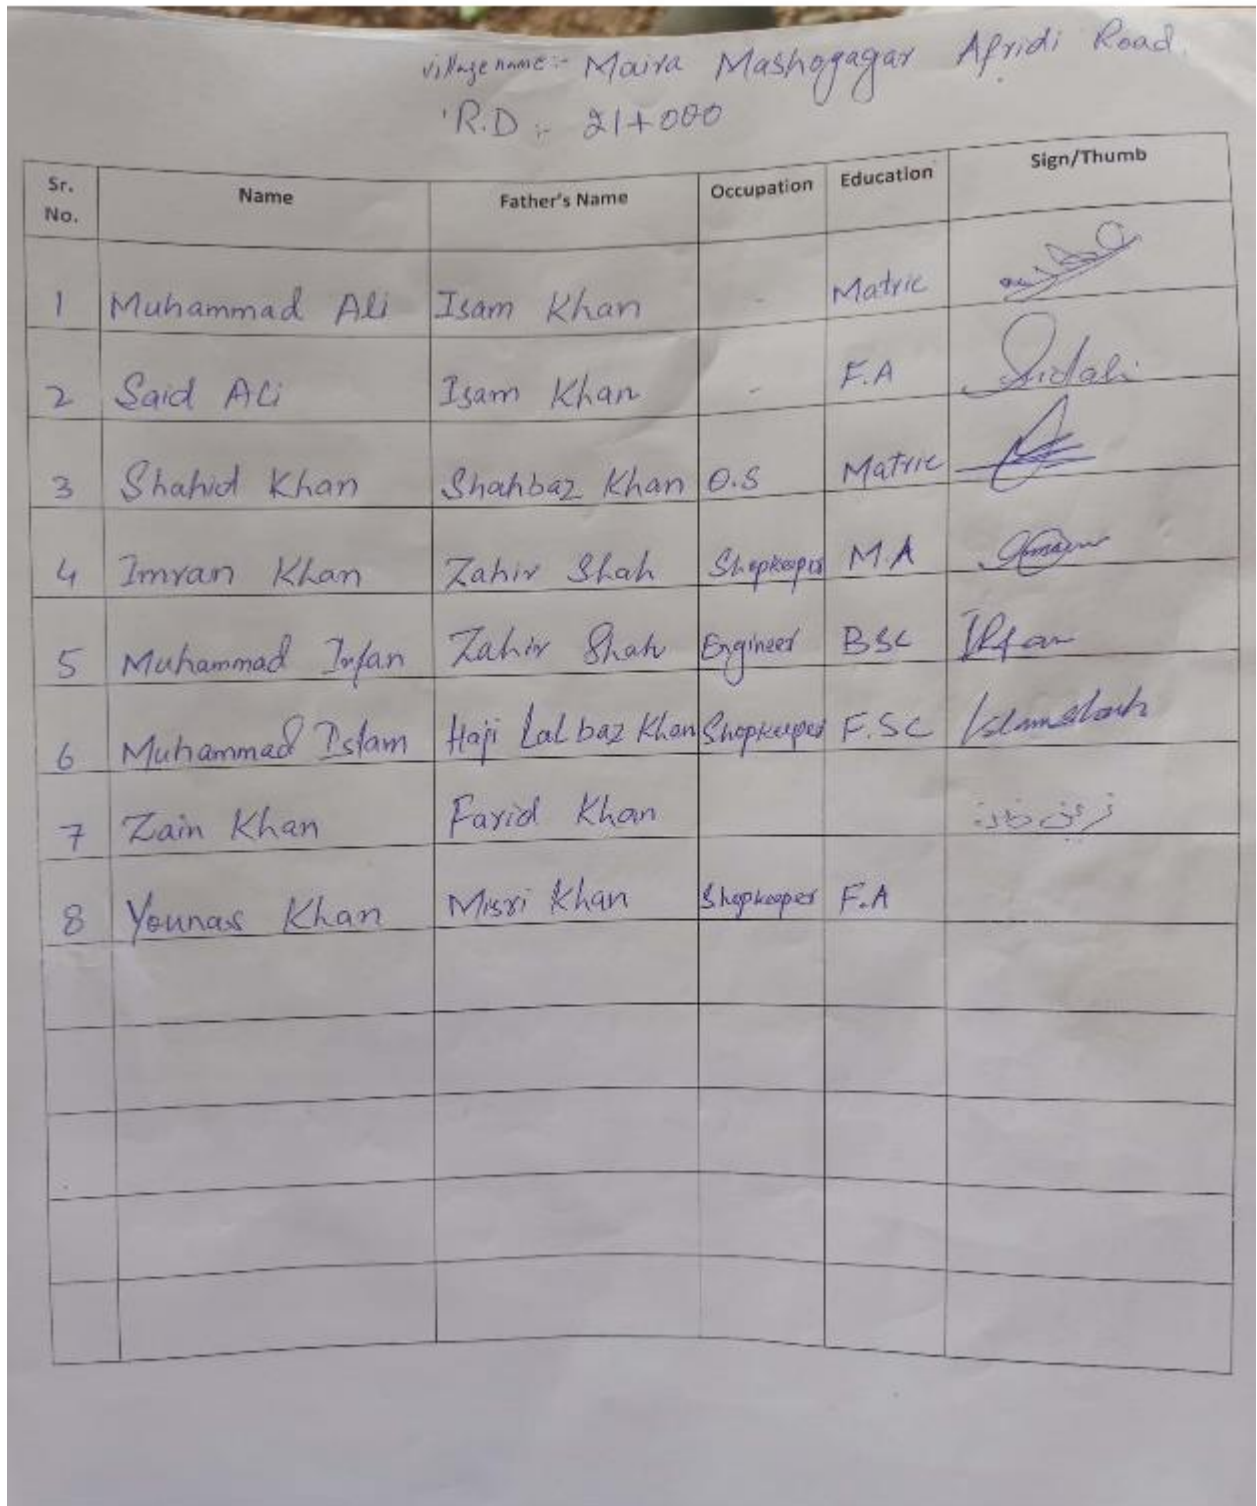 village name :- Maira Mashogagar Afridi Road.
R.D :- 21+000
Sr. No. Name Father's Name Occupation Education Sign/Thumb
1 Muhammad Ali Isam Khan - Matric
2 Said Ali Isam Khan - F.A Saidali
3 Shahid Khan Shahbaz Khan O.S Matric
4 Imran Khan Zahir Shah Shopkeeper M.A
5 Muhammad Irfan Zahir Shah Engineer BSC Irfan
6 Muhammad Islam Haji Lal baz Khan Shopkeeper F.SC Islamshah
7 Zain Khan Farid Khan
8 Younas Khan Misri Khan Shopkeeper F.A